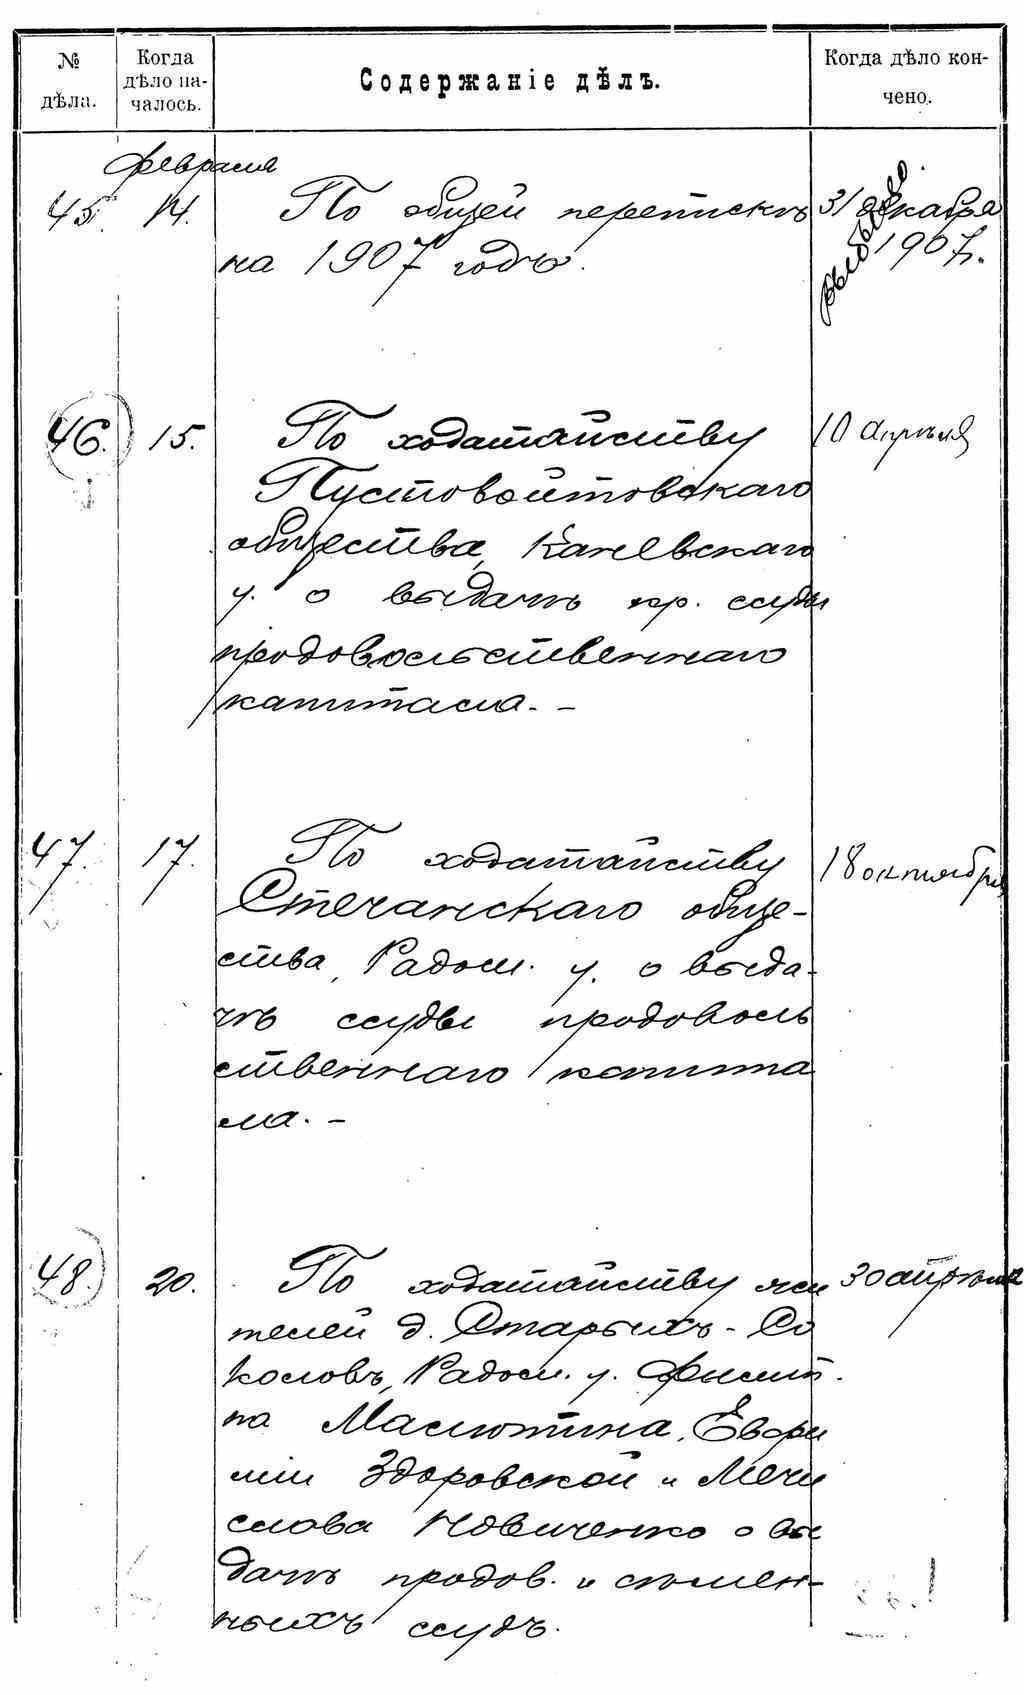 №
дѣла.
Когда
дѣло на-
чалось.
Содержаніе дѣлъ.
Когда дѣло кон-
чено.
февраля
45. 14. По общей перепискѣ 31 декабря
на 1907 годъ. 1907 г.
выбыло.
46. 15. По ходатайству 10 апрѣля
Пустовойтовскаго
общества, Каневскаго
у. о выдачѣ пр. ссуды
продовольственнаго
капитала. -
47. 17. По ходатайству 18 октября
Стечанскаго обще-
ства, Радом. у. о выда-
чѣ ссуды продоволь
ственнаго капита
ла. -
48. 20. По ходатайству жи 30 апрѣля
телей д. Старыхъ-Со
коловъ, Радом. у. Филип
па Малютина, Евфи
міи Здоровской и Мечи
слова Новиченко о вы
дачѣ продов. и сѣмен-
ныхъ ссудъ.